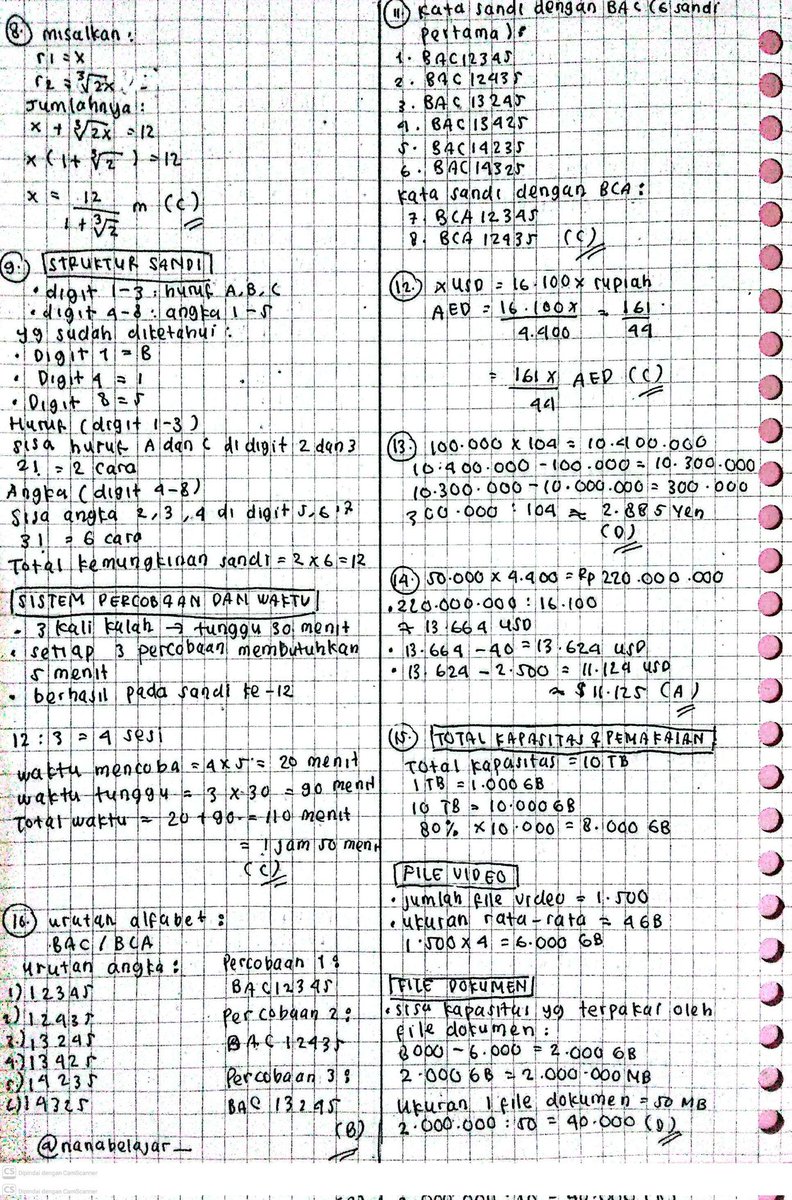 8. misalkan :
r1 = x
r2 = ∛2x
Jumlahnya :
x + ∛2x = 12
x ( 1 + ∛2 ) = 12
x = 12 / 1 + ∛2 m (C)
9. STRUKTUR SANDI
• digit 1-3 : huruf A, B, C
• digit 4-8 : angka 1-5
yg sudah diketahui :
• Digit 1 = B
• Digit 4 = 1
• Digit 8 = 5
Huruf (digit 1-3)
sisa huruf A dan C di digit 2 dan 3
2! = 2 cara
Angka (digit 4-8)
Sisa angka 2, 3, 4 di digit 5, 6, 7
3! = 6 cara
Total kemungkinan sandi = 2 x 6 = 12
SISTEM PERCOBAAN DAN WAKTU
• 3 kali kalah → tunggu 30 menit
• setiap 3 percobaan membutuhkan
5 menit
• berhasil pada sandi ke-12
12 : 3 = 4 sesi
waktu mencoba = 4 x 5 = 20 menit
waktu tunggu = 3 x 30 = 90 menit
Total waktu = 20 + 90 = 110 menit
= 1 jam 50 menit
(C)
10. urutan alfabet :
BAC / BCA
urutan angka :
1) 12345
2) 12435
3) 13245
4) 13425
5) 14235
6) 14325
Percobaan 1 :
BAC12345
Percobaan 2 :
BAC 12435
Percobaan 3 :
BAC 13245
(B)
@nanabelajar_
11. kata sandi dengan BAC (6 sandi
pertama) :
1. BAC12345
2. BAC 12435
3. BAC 13245
4. BAC 13425
5. BAC14235
6. BAC14325
kata sandi dengan BCA :
7. BCA 12345
8. BCA 12435 (C)
12. x USD = 16.100x rupiah
AED = 16.100x / 4.400 = 161 / 44
= 161 x / 44 AED (C)
13. 100.000 x 104 = 10.400.000
10.400.000 - 100.000 = 10.300.000
10.300.000 - 10.000.000 = 300.000
300.000 : 104 ≈ 2.885 Yen
(D)
14. 50.000 x 4.400 = Rp 220.000.000
• 220.000.000 : 16.100
≈ 13.664 USD
• 13.664 - 40 = 13.624 USD
• 13.624 - 2.500 = 11.124 USD
≈ $ 11.125 (A)
15. TOTAL KAPASITAS & PEMAKAIAN
Total kapasitas = 10 TB
1 TB = 1.000 GB
10 TB = 10.000 GB
80% x 10.000 = 8.000 GB
FILE VIDEO
• jumlah file video = 1.500
• ukuran rata-rata = 4GB
1.500 x 4 = 6.000 GB
FILE DOKUMEN
• sisa kapasitas yg terpakai oleh
file dokumen :
8000 - 6.000 = 2.000 GB
2.000 GB = 2.000.000 MB
Ukuran 1 file dokumen = 50 MB
2.000.000 : 50 = 40.000 (D)
CS Dipindai dengan CamScanner
CS Dipindai dengan CamScanner